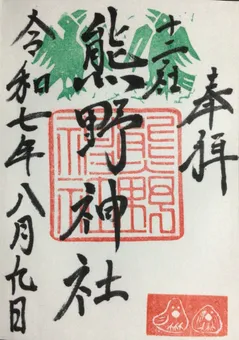 奉拝
十二社
熊野神社
令和七年八月九日
熊野神社